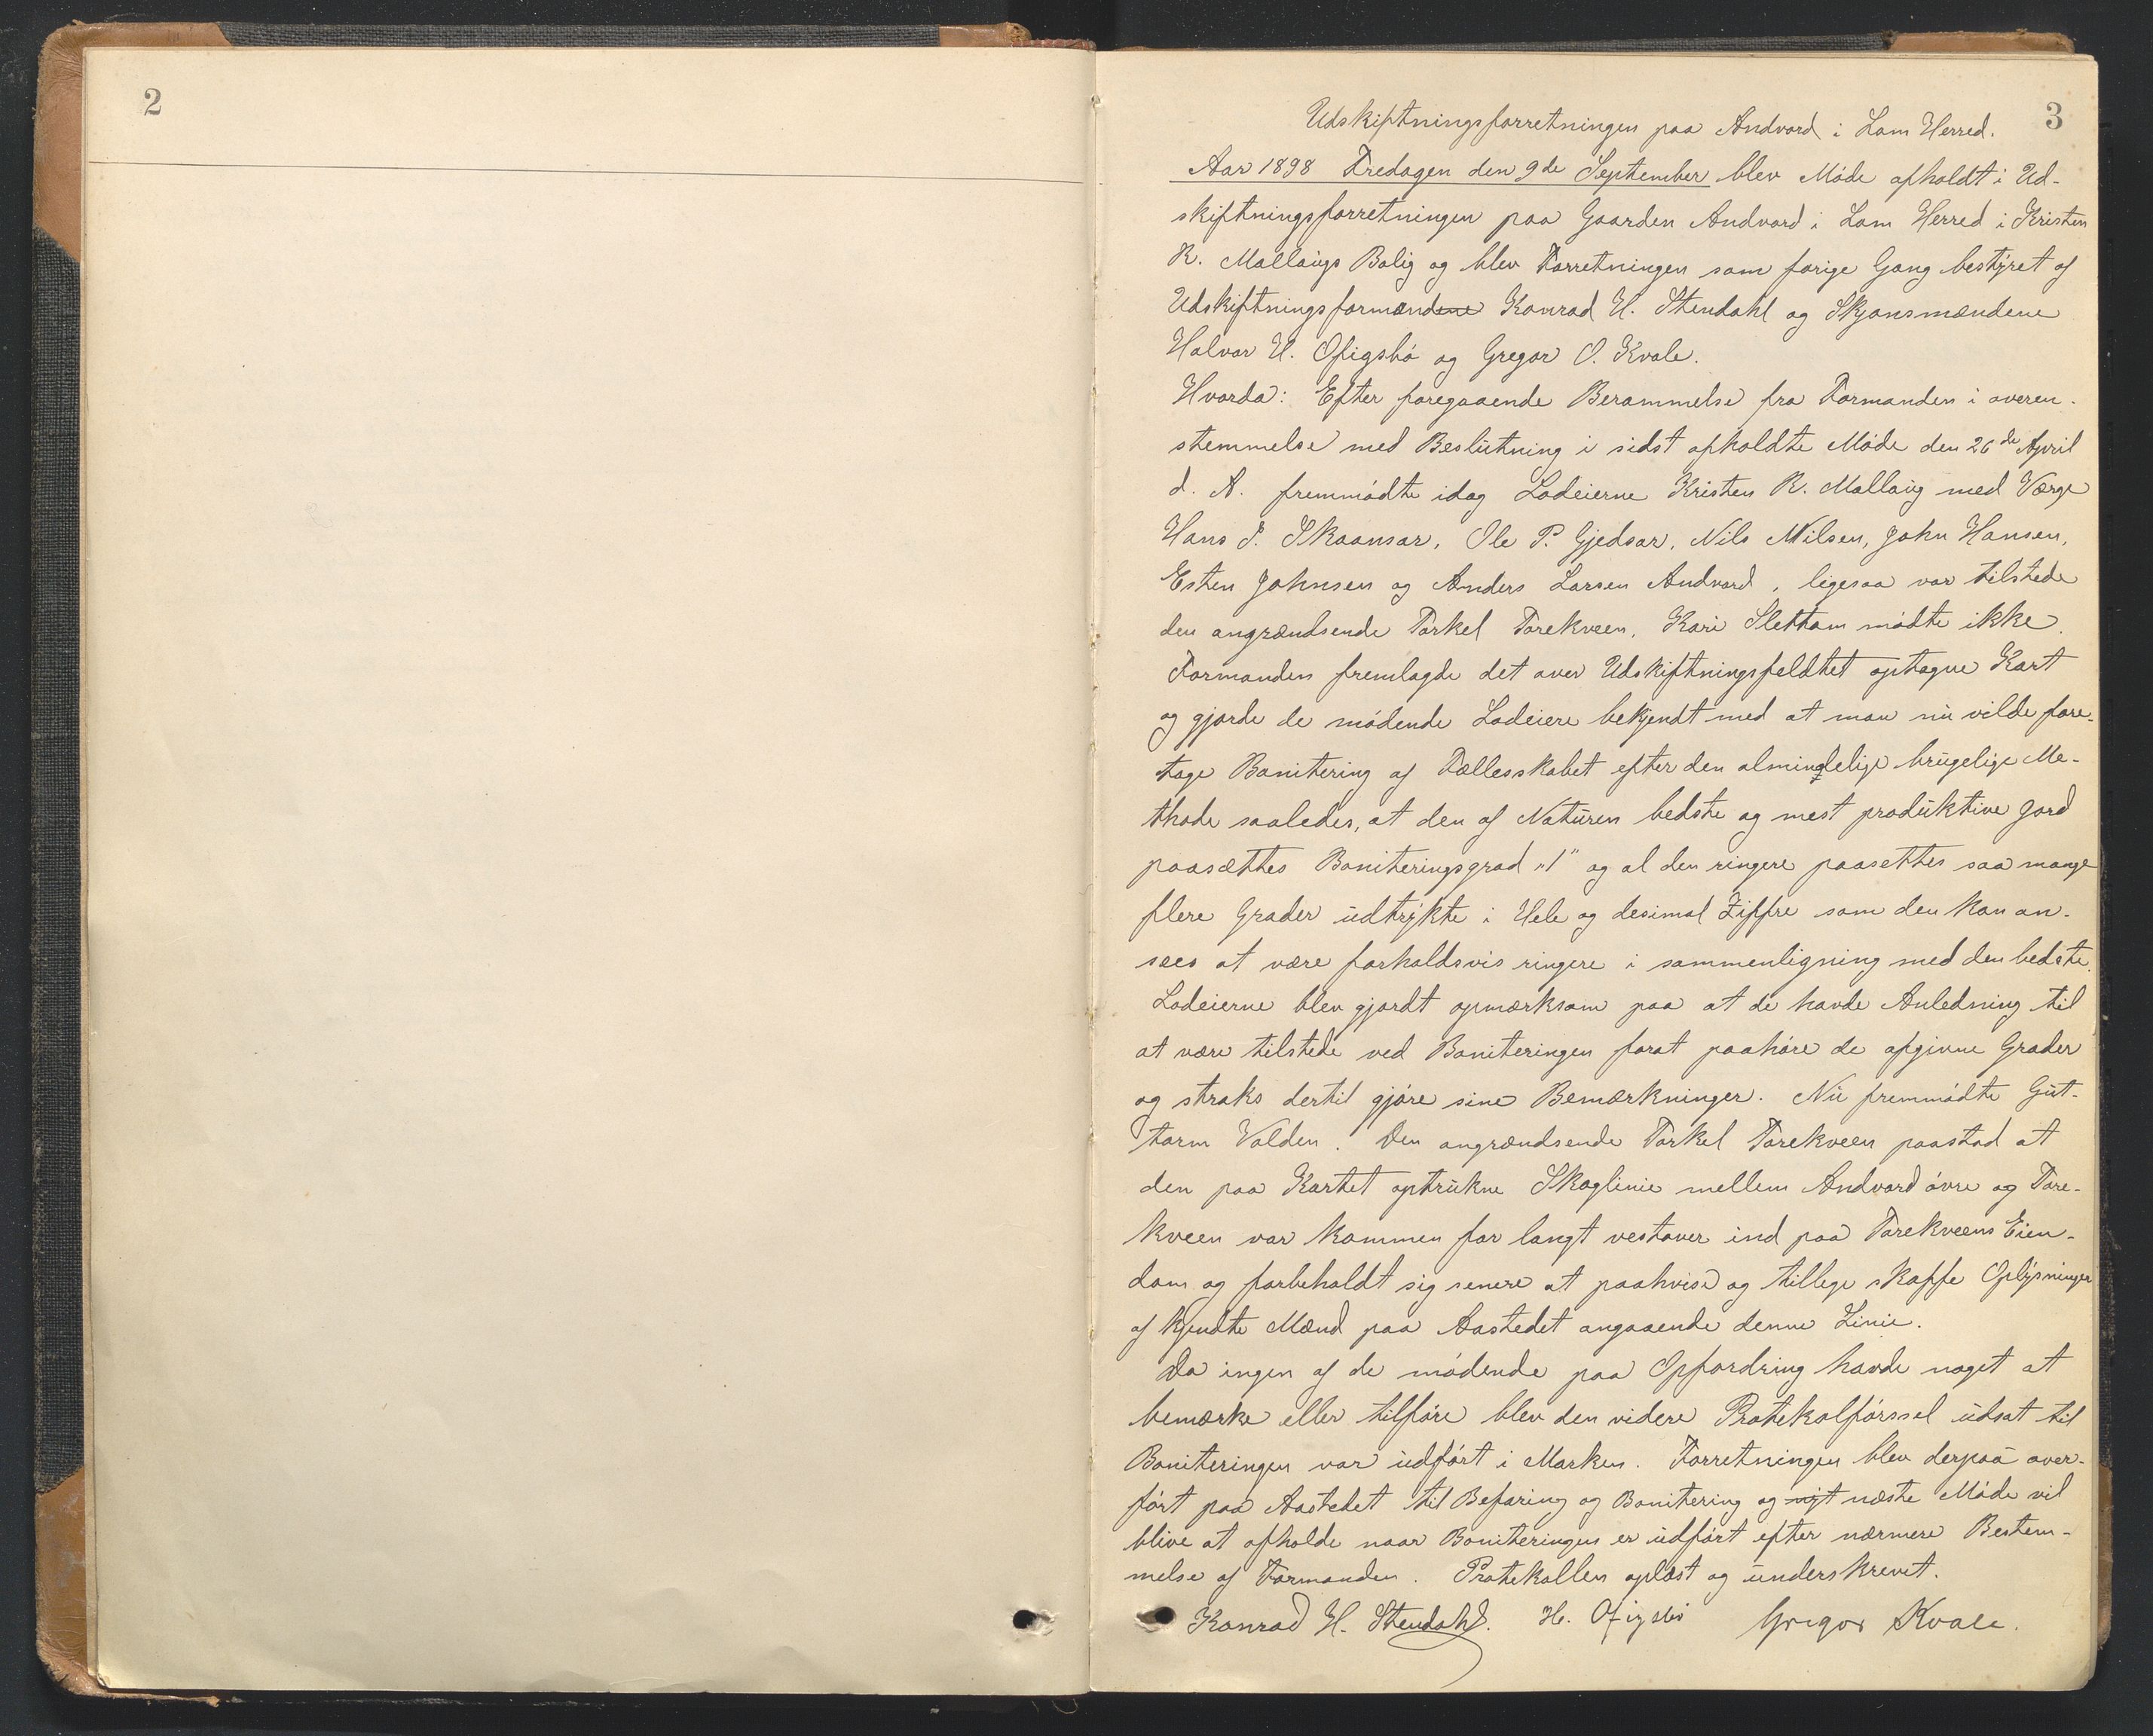 2
3
Udskiftningsforretningen paa Andvord i Lom Herred.
Aar 1898 Fredagen den 9de September blev Møde afholdt i Ud-
skiftningsforretningen paa Gaarden Andvord i Lom Herred i Kristen
R. Mollaugs Bolig og blev Forretningen som forige Gang bestyret af
Udskiftningsformandene Konrad H. Stendahl og Skjønsmændene
Halvor H. Ofigsbø og Gregor O. Kvale.
Hvorda: Efter foregaaende Berammelse fra Formanden i overen-
stemmelse med Beslutning i sidst afholdte Møde den 26de April
d. A. fremmødte idag Lodeierne Kristen R. Mollaug med Værge
Hans P. Skaansar, Ole P. Gjedsar, Nils Nilsen, John Hansen,
Esten Johnsen og Anders Larsen Andvord, ligesaa var tilstede
den angrændsende Torkel Torekveen, Kari Slettom mødte ikke.
Formanden fremlagde det over Udskiftningsfeldtet optagne Kart
og gjorde de mødende Lodeiere bekjendt med at man nu vilde fore-
tage Bonitering af Fællesskabet efter den almindelige brugelige Me-
thode saaledes, at den af Naturen bedste og mest produktive Jord
paasættes Boniteringsgrad "1" og al den ringere paasettes saa mange
flere Grader udtrykte i Hele og desimal Ziffre som den kan an-
sees at være forholdsvis ringere i sammenligning med den bedste.
Lodeierne blev gjordt opmærksom paa at de havde Anledning til
at være tilstede ved Boniteringen forat paahøre de afgivne Grader
og straks dertil gjøre sine Bemærkninger. Nu fremmødte Gut-
torm Volden. Den angrændsende Torkel Torekveen paastod at
den paa Kartet optrukne Skoglinie mellem Andvord øvre og Tore-
kveen var kommen for langt vestover ind paa Torekveens Eien-
dom og forbeholdt sig senere at paahvise og tillige skaffe Oplysninger
af kjendte Mænd paa Aastedet angaaende denne Linie.
Da ingen af de mødende paa Opfordring havde noget at
bemærke eller tilføre blev den videre Protekolførssel udsat til
Boniteringen var udført i Marken. Forretningen blev derpaa over-
ført paa Aastedet til Befaring og Bonitering og nyt næste Møde vil
blive at afholde naar Boniteringen er udført efter nærmere Bestem-
melse af Formanden. Protekollen oplæst og underskrevet.
Konrad H. Stendahl. H. Ofigsbø Gregor Kvale.